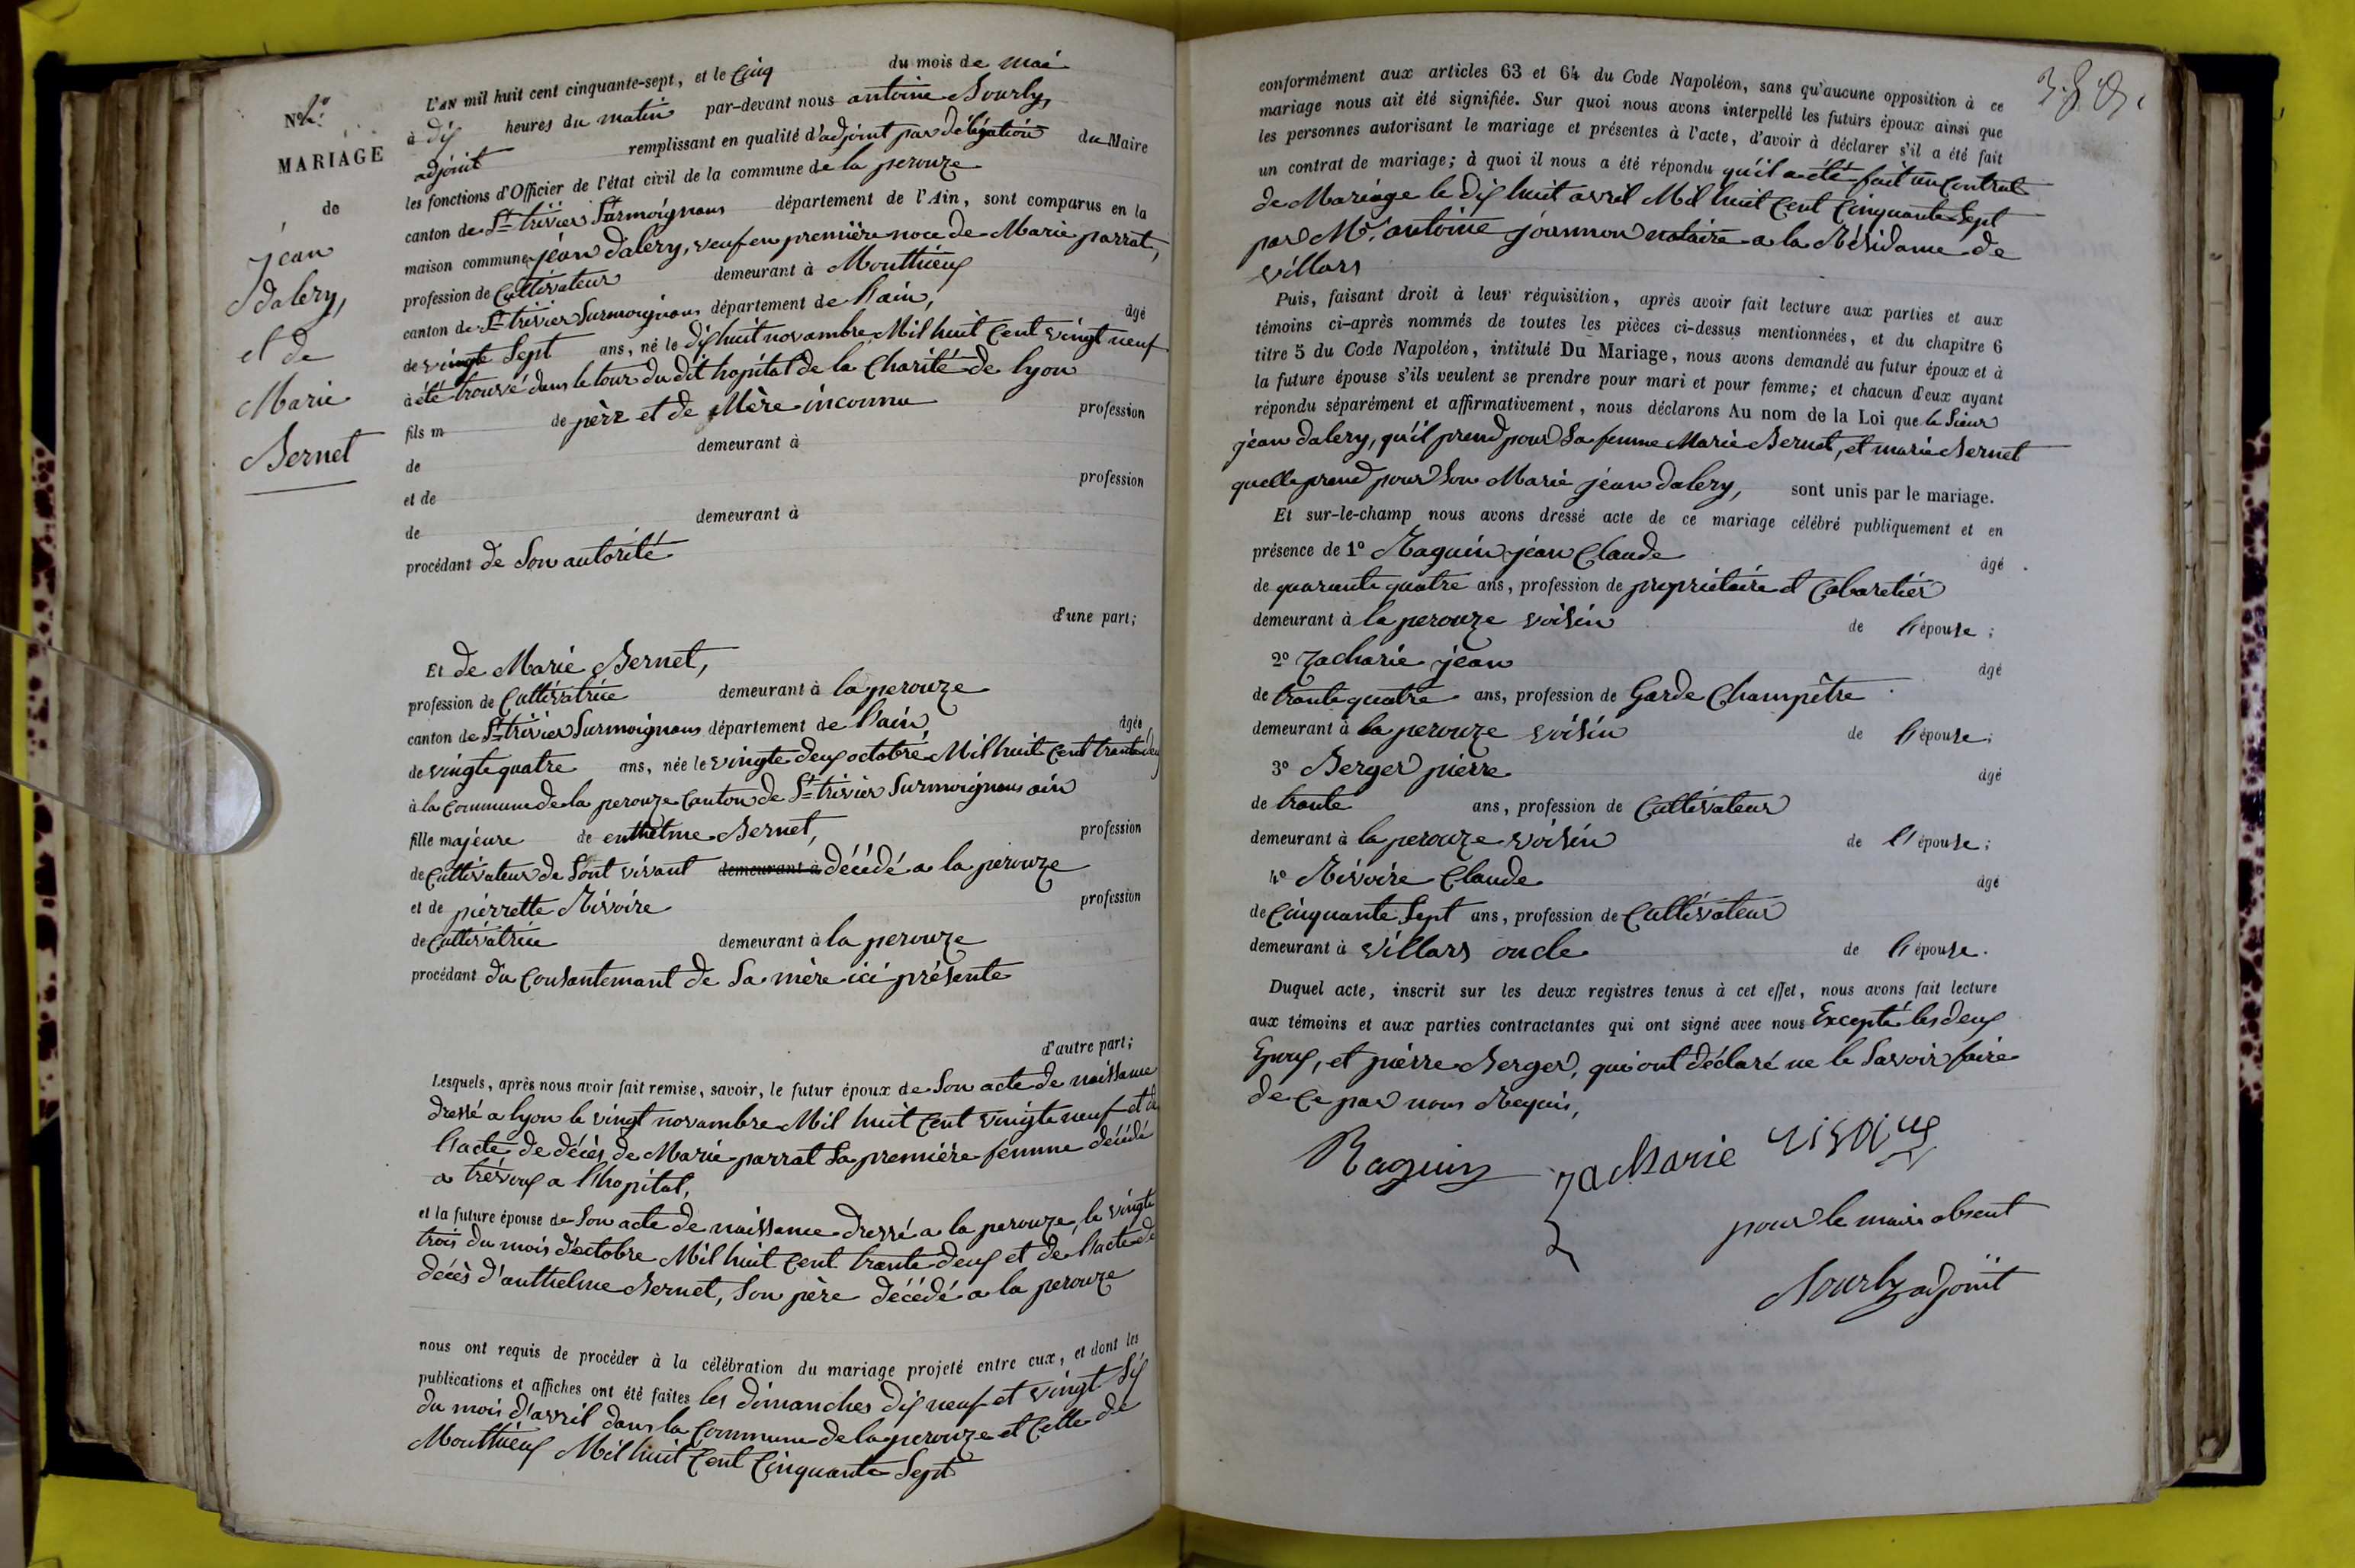 N° 2.
MARIAGE
de
Jean
dalery,
et de
Marie
Bernet
L'AN mil huit cent cinquante-sept, et le Cinq du mois de mai
à dix heures du matin par-devant nous antoine Sourby,
adjoint remplissant en qualité d'adjoint par délégation du Maire
les fonctions d'Officier de l'état civil de la commune de la perouze
canton de St trivier Surmoignans département de l'Ain, sont comparus en la
maison commune jean dalery, veuf en première noce de Marie parrat,
profession de Cultivateur demeurant à Monthieux
canton de St trivier Surmoignans département de l'ain, âgé
de vingte Sept ans, né le dix huit novambre Mil huit Cent vingt neuf
à été trouvé dans le tour du dit hopital de la Charité de lyon
fils m de père et de Mère inconnu profession
de demeurant à
et de profession
de demeurant à
procédant de Son autorité
d'une part;
Et de Marie Bernet,
profession de Cultivatrice demeurant à la perouze
canton de St trivier Surmoignans département de l'ain, âgée
de vingte quatre ans, née le vingte deux octobre Mil huit Cent trante deux
à la Commune de la perouze Canton de St trivier Surmoignans ain
fille majeure de enthelme Bernet, profession
de Cultivateur de Sont vivant demeurant à décédé a la perouze
et de pierrette Rivoire profession
de Cultivatrice demeurant à la perouze
procédant du Consantemant de Sa mère ici présente
d'autre part;
Lesquels, après nous avoir fait remise, savoir, le futur époux de Son acte de naissance
dressé a lyon le vingt novambre Mil huit Cent vingte neuf et de
l'acte de décès de Marie parrat Sa première femme décédé
a trévoux a l'hopital,
et la future épouse de Son acte de naissance dressé a la perouze, le vingte
trois du mois d'octobre Mil huit Cent trante deux et de l'acte de
décès d'anthelme Bernet, Son père décédé a la perouze
nous ont requis de procéder à la célébration du mariage projeté entre eux, et dont les
publications et affiches ont été faites les dimanches dix neuf et vingt Six
du mois d'avril dans la Commune de la perouze et Celle de
Monthieux Mil huit Cent Cinquante Sept
conformément aux articles 63 et 64 du Code Napoléon, sans qu'aucune opposition à ce
mariage nous ait été signifiée. Sur quoi nous avons interpellé les futurs époux ainsi que
les personnes autorisant le mariage et présentes à l'acte, d'avoir à déclarer s'il a été fait
un contrat de mariage; à quoi il nous a été répondu qu'il a été fait un Contrat
de Mariage le dix huit avril Mil huit Cent Cinquante Sept
par Me. antoine joannon notaire a la Résidance de
villars
Puis, faisant droit à leur réquisition, après avoir fait lecture aux parties et aux
témoins ci-après nommés de toutes les pièces ci-dessus mentionnées, et du chapitre 6
titre 5 du Code Napoléon, intitulé Du Mariage, nous avons demandé au futur époux et à
la future épouse s'ils veulent se prendre pour mari et pour femme; et chacun d'eux ayant
répondu séparément et affirmativement, nous déclarons Au nom de la Loi que le Sieur
jean dalery, qu'il prend pour Sa femme Marie Bernet, et marie Bernet
quelle prend pour Son Marie jean dalery, sont unis par le mariage.
Et sur-le-champ nous avons dressé acte de ce mariage célébré publiquement et en
présence de 1° Raguin jean Claude âgé
de quarante quatre ans, profession de propriétaire et Cabaretier
demeurant à la perouze voisin de l'épouse;
2° Zacharie jean âgé
de trante quatre ans, profession de Garde Champêtre
demeurant à la perouze voisin de l'épouse;
3° Berger pierre âgé
de trante ans, profession de Cultivateur
demeurant à la perouze voisin de l'épouse;
4° Rivoire Claude âgé
de Cinquante Sept ans, profession de Cultivateur
demeurant à villars oncle de l'épouse.
Duquel acte, inscrit sur les deux registres tenus à cet effet, nous avons fait lecture
aux témoins et aux parties contractantes qui ont signé avec nous Excepté les deux
Epoux, et pierre Berger, qui ont déclaré ne le Savoir faire
de Ce par nous Requis,
Raguin Zacharie
pour le maire absent
Sourby adjoint